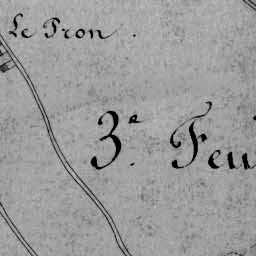 Le Tron.
3.e Feu